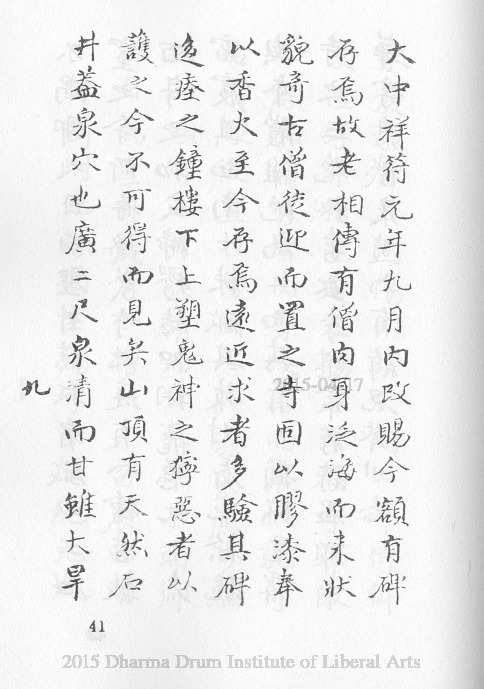 大中祥符元年九月內改賜今額有碑
存焉故老相傳有僧肉身泛海而來狀
貌奇古僧徒迎而置之寺固以膠漆奉
以香火至今存焉遠近求者多驗其碑
迨瘞之鐘樓下上塑鬼神之獰惡者以
護之今不可得而見矣山頂有天然石
井蓋泉穴也廣二尺泉清而甘雖大旱
九
41
2015-04-17
2015 Dharma Drum Institute of Liberal Arts